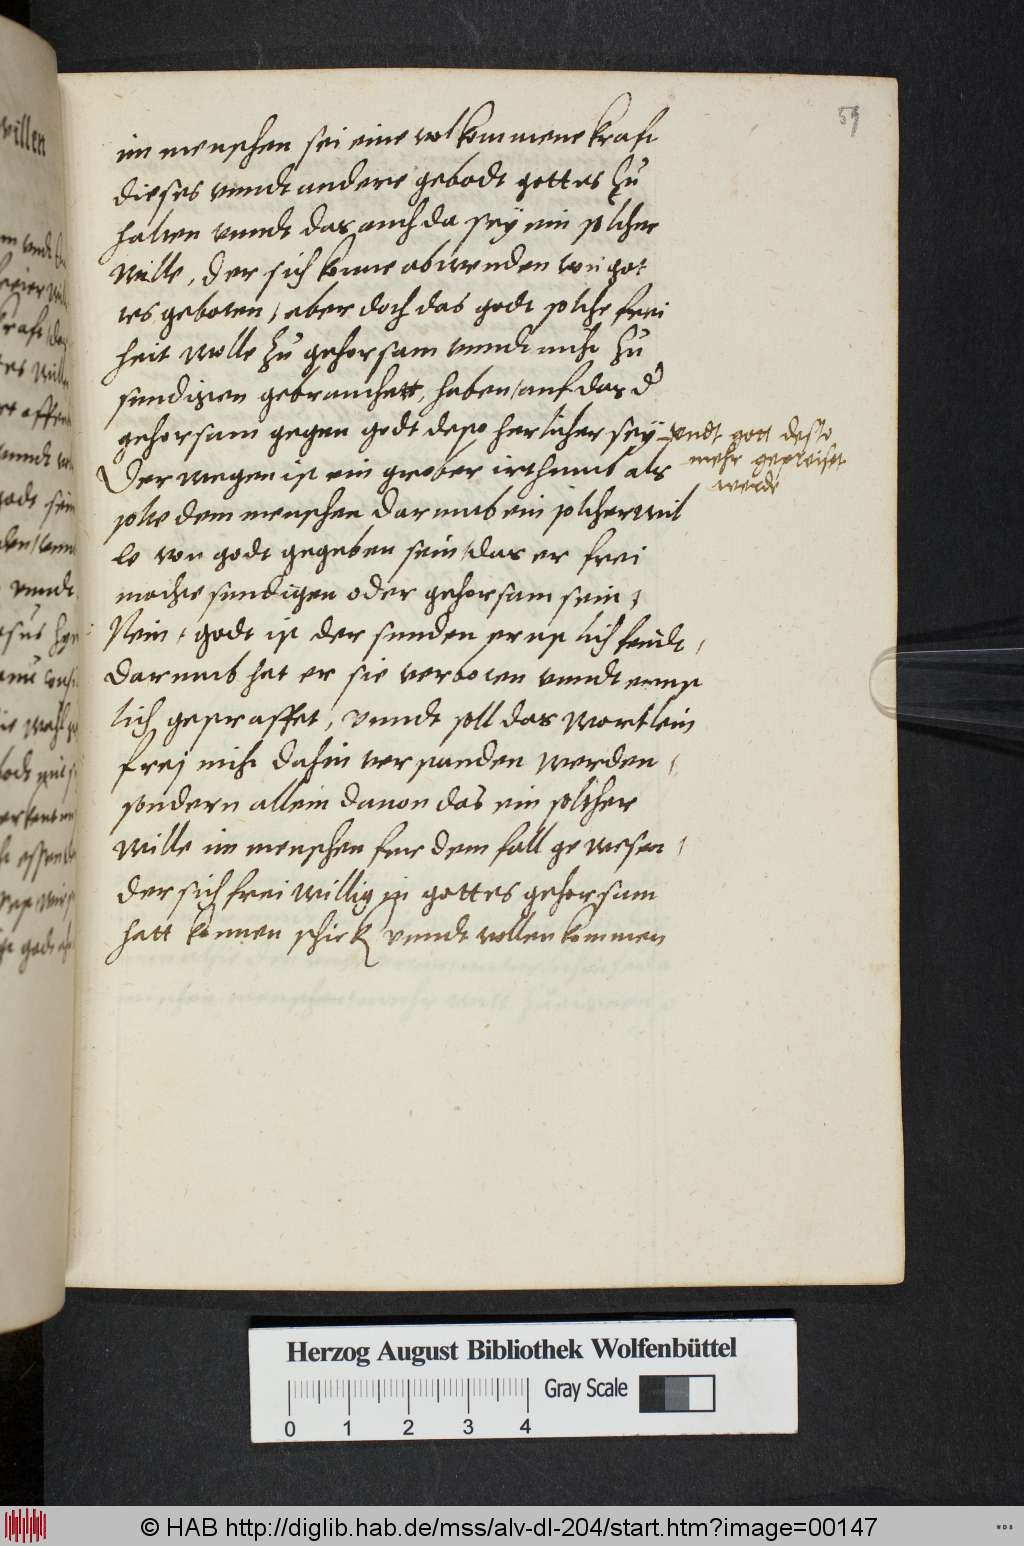 59
im menschen sei eine volkommene kraft
dieses vnndt andere gebodt gottes zu
halten vnndt das auch da sey ein solcher
Wille, der sich konne abwenden von got
tes geboten, aber doch das godt solche frei
heit wolle zu gehorsam vnndt nicht zu
sundigen gebrauchett, haben, auf das d
gehorsam gegen godt desto herlicher sey vndt gott desto
mehr gepreiset
werde
Der wegen ist ein grober irthumb als
solte dem menschen darumb ein solcher wil
le von godt gegeben sein, das er frei
mochte sundigen oder gehorsam sein,
Nein, godt ist der sunden ernstlich feindt,
Darumb hat er sie verboten vnndt ernst
lich gestraffet, vnndt soll das wortlein
frej nicht dahin verstanden werden,
sondern allein dauon das ein solcher
wille im menschen fur dem fall gewesen,
der sich frei willig in gottes gehorsam
hatt konnen schick vnndt vollenkommen
willen
Herzog August Bibliothek Wolfenbüttel
Gray Scale
0 1 2 3 4
© HAB http://diglib.hab.de/mss/alv-dl-204/start.htm?image=00147